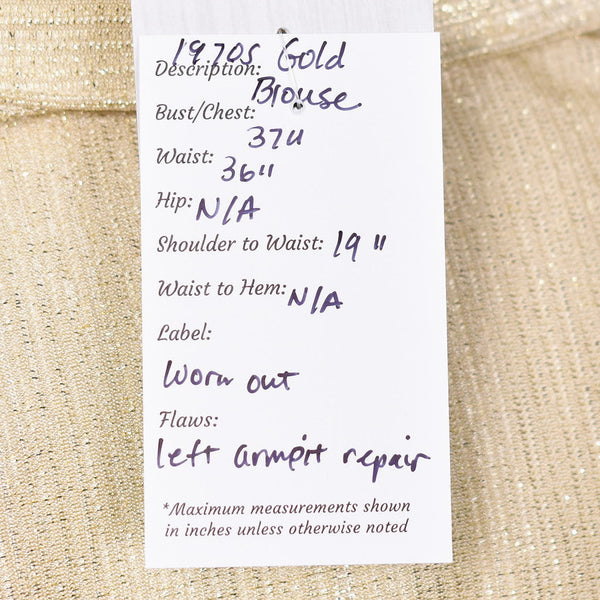 Description: 1970s Gold
Blouse
Bust/Chest: 37"
Waist: 36"
Hip: N/A
Shoulder to Waist: 19"
Waist to Hem: N/A
Label:
Worn out
Flaws:
left armpit repair
*Maximum measurements shown
in inches unless otherwise noted